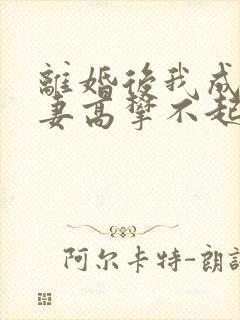 離婚後我成
妻高攀不起
阿尔卡特-朗